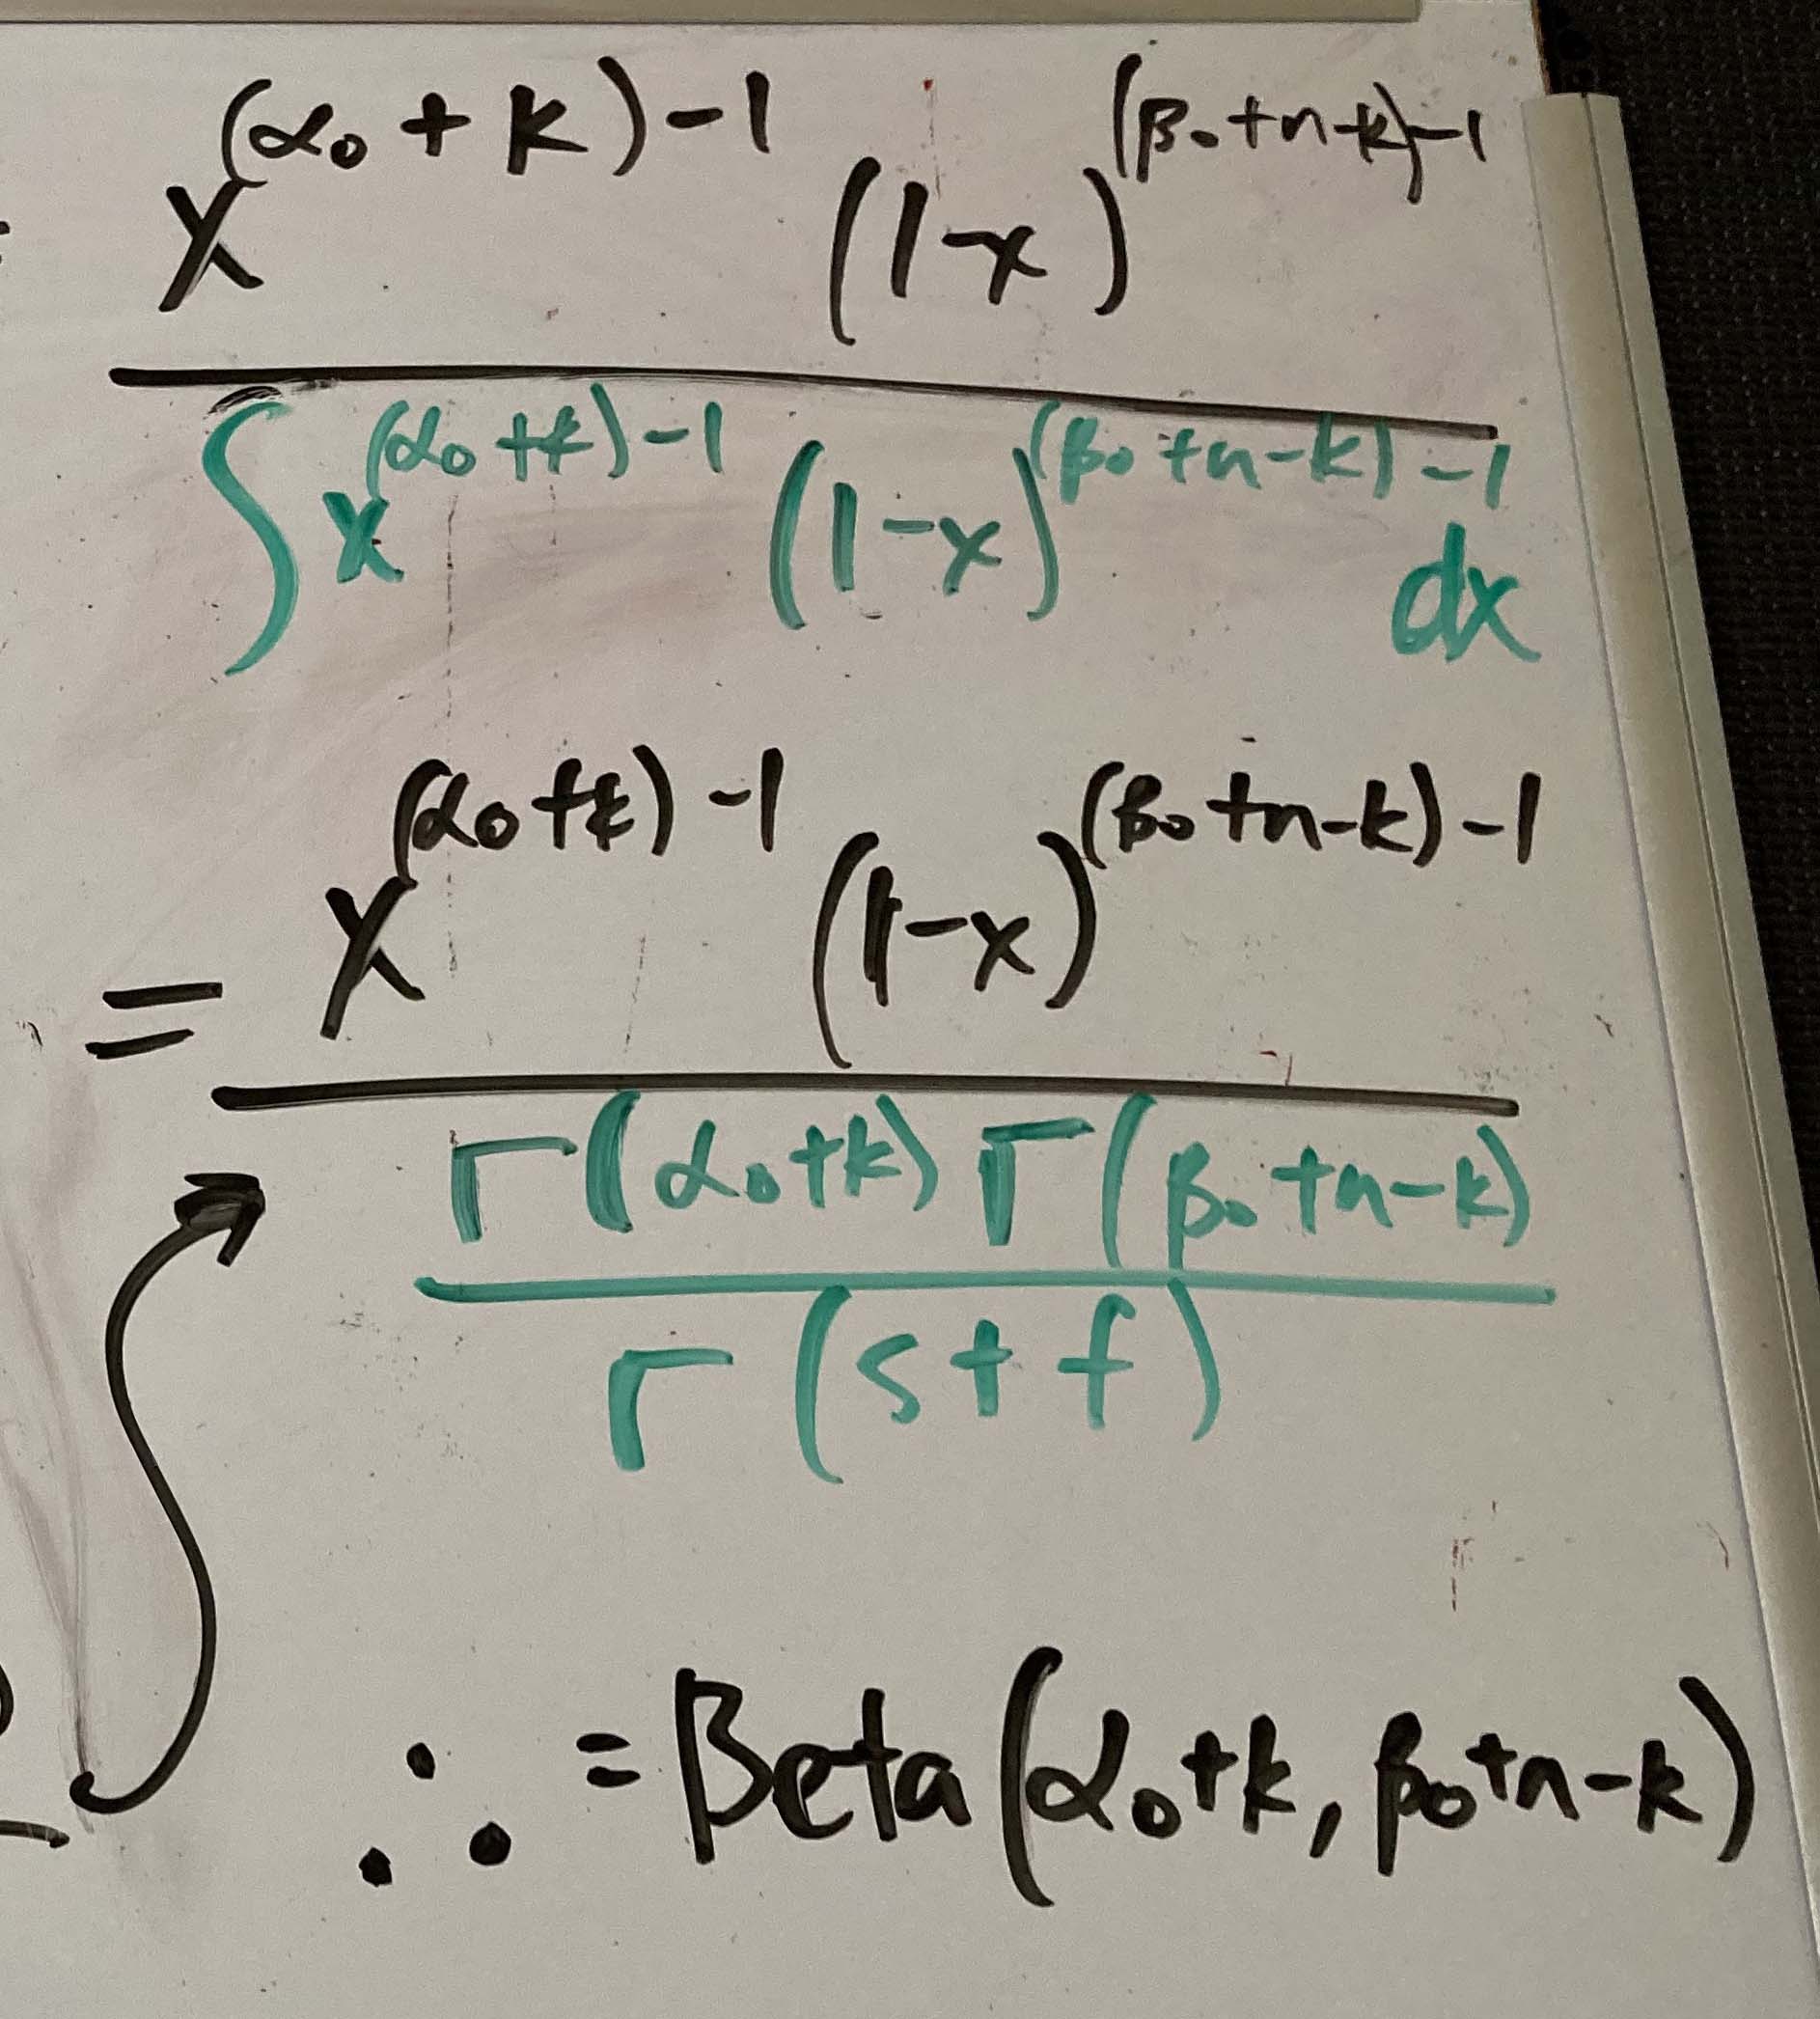 x^{(α₀+k)-1} (1-x)^{(β₀+n-k)-1}
∫ x^{(α₀+k)-1} (1-x)^{(β₀+n-k)-1} dx
= x^{(α₀+k)-1} (1-x)^{(β₀+n-k)-1}
Γ(α₀+k) Γ(β₀+n-k)
Γ(s+f)
∴ = Beta(α₀+k, β₀+n-k)